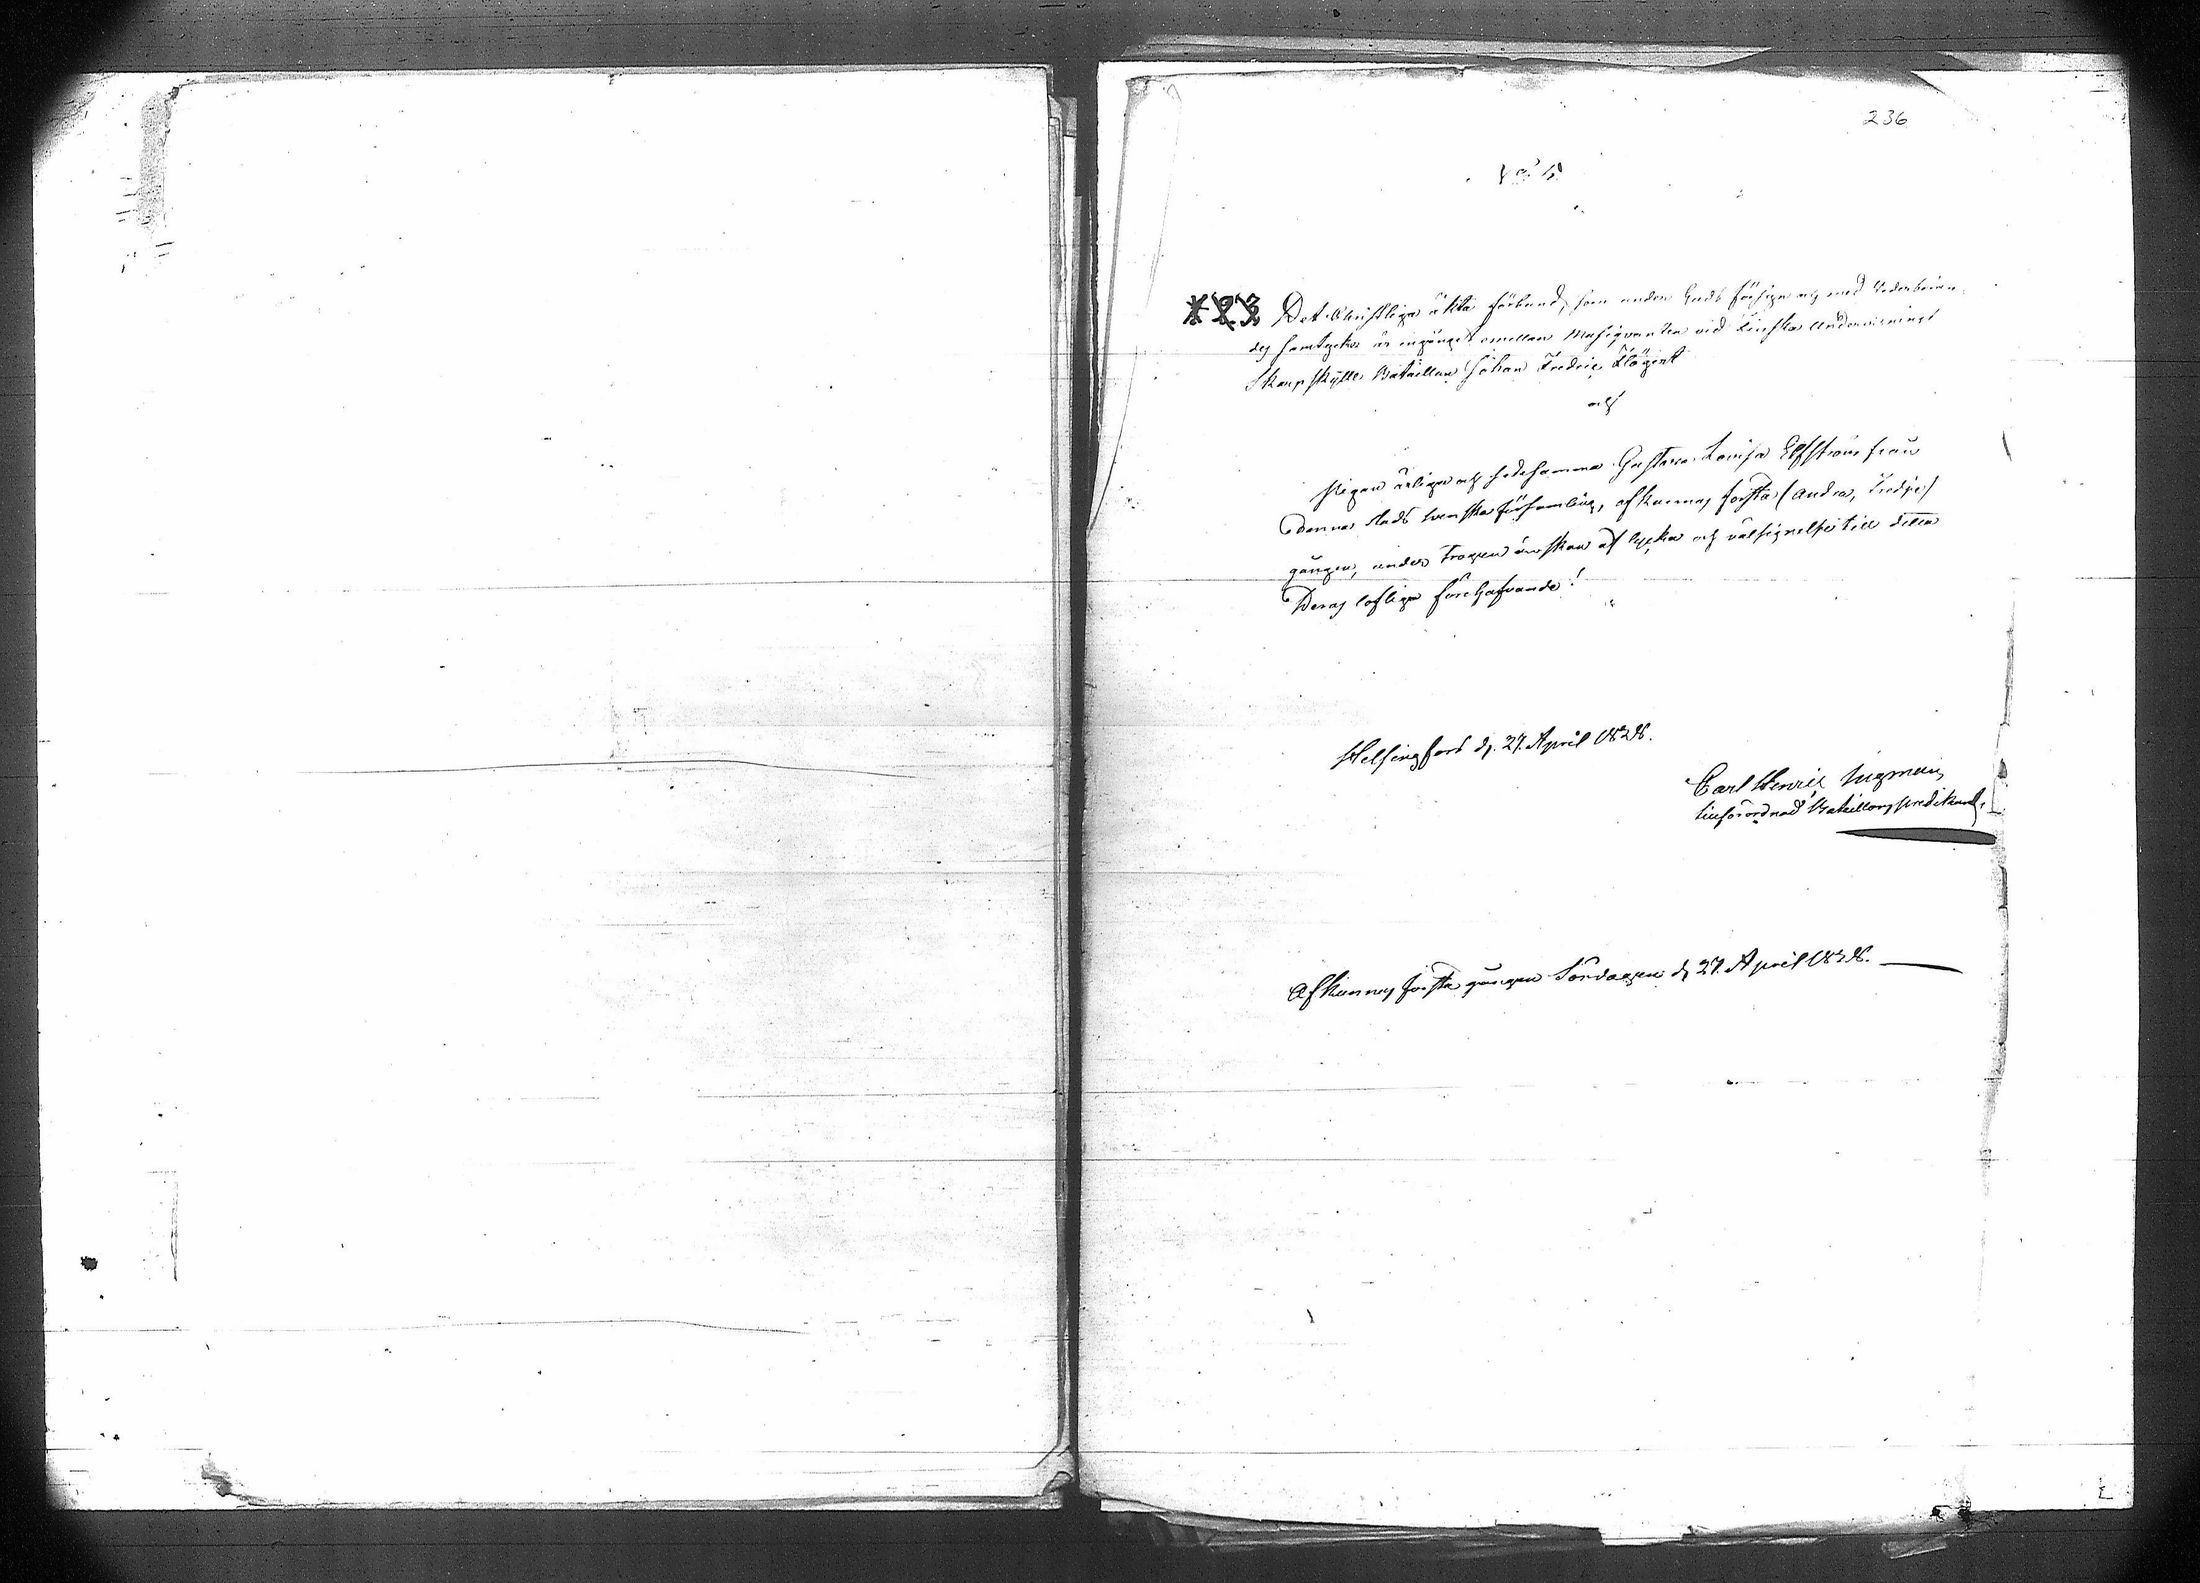 236
1. 2. 3. Det Christliga äkta förbund, som under Guds försyn och med Vederböran-
des samtycke är ingånget emellan Musiquanten vid Finska Undervisnings
Skarpskytte Bataillon Johan Fredric Flögert
och
Pigan ärliga och sedesamma Gustava Lovisa Elfström från
denna stads Svenska församling, afkunnas första (andra, tredje)
gången, under trogen önskan af lycka och välsignelse till detta
Deras lofliga förehafvande!
Helsingfors d. 27. April 1828.
Carl Henric Ingman,
tillförordnad Bataillons predikant.
Afkunnas första gången Söndagen d. 27. April 1828.